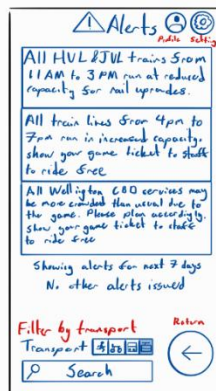 Alerts
Profile
Setting
All HVL & JVL trains from
11AM to 3PM run at reduced
capacity for rail uprades.
All train lines from 4pm to
7pm run in increased capacity.
show your game ticket to staff
to ride free
All Wellington CBD services may
be more crowded than usual due to
the game. Please plan accordingly.
show your game ticket to staff
to ride free
Showing alerts for next 7 days
No other alerts issued
Filter by transport
Return
Transport
Search